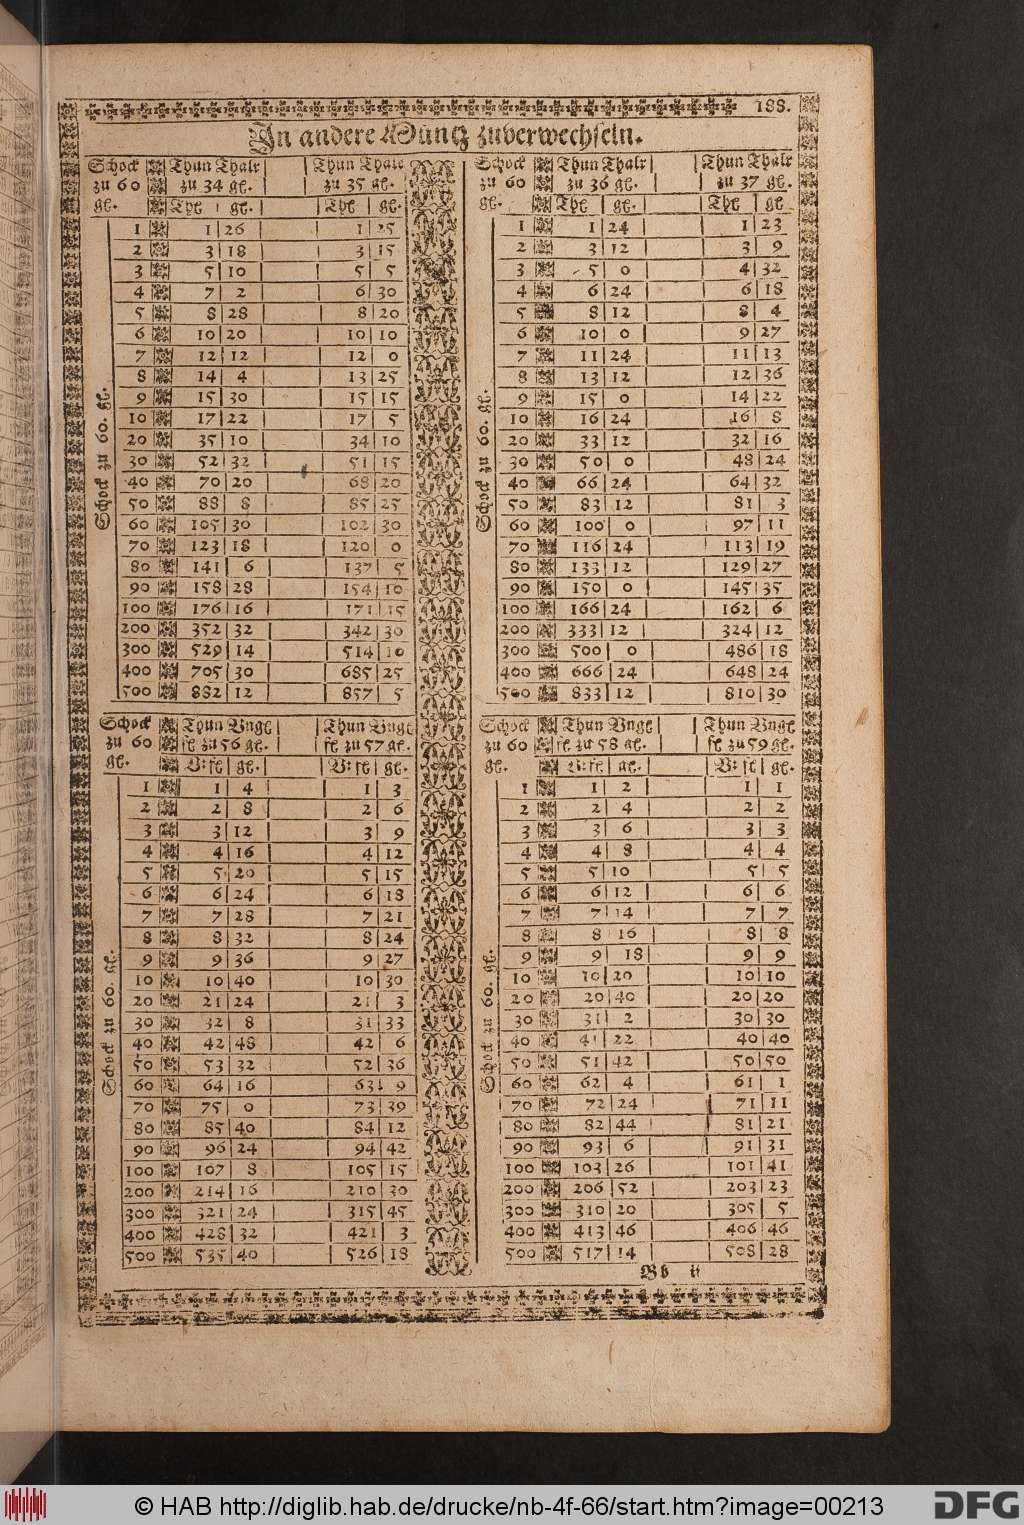 188.
In andere Müntz zuverwechseln.
Schock Thun Thalr Thun Thalr
zu 60 zu 34 gl. zu 35 gl.
gl. Thl gl. Thl gl.
1 1 26 1 25
2 3 18 3 15
3 5 10 5 5
4 7 2 6 30
5 8 28 8 20
6 10 20 10 10
7 12 12 12 0
8 14 4 13 25
9 15 30 15 15
10 17 22 17 5
20 35 10 34 10
30 52 32 51 15
40 70 20 68 20
50 88 8 85 25
60 105 30 102 30
70 123 18 120 0
80 141 6 137 5
90 158 28 154 10
100 176 16 171 15
200 352 32 342 30
300 529 14 514 10
400 705 30 685 25
500 882 12 857 5
Schock zu 60. gl.
Schock Thun Thalr Thun Thalr
zu 60 zu 36 gl. zu 37 gl.
gl. Thl gl. Thl gl
1 1 24 1 23
2 3 12 3 9
3 5 0 4 32
4 6 24 6 18
5 8 12 8 4
6 10 0 9 27
7 11 24 11 13
8 13 12 12 36
9 15 0 14 22
10 16 24 16 8
20 33 12 32 16
30 50 0 48 24
40 66 24 64 32
50 83 12 81 3
60 100 0 97 11
70 116 24 113 19
80 133 12 129 27
90 150 0 145 35
100 166 24 162 6
200 333 12 324 12
300 500 0 486 18
400 666 24 648 24
500 833 12 810 30
Schock zu 60. gl.
Schock Thun Vngl Thun Vngl
zu 60 fl zu 56 gl. fl zu 57 gl.
gl. V: fl gl. V: fl gl.
1 1 4 1 3
2 2 8 2 6
3 3 12 3 9
4 4 16 4 12
5 5 20 5 15
6 6 24 6 18
7 7 28 7 21
8 8 32 8 24
9 9 36 9 27
10 10 40 10 30
20 21 24 21 3
30 32 8 31 33
40 42 48 42 6
50 53 32 52 36
60 64 16 63 9
70 75 0 73 39
80 85 40 84 12
90 96 24 94 42
100 107 8 105 15
200 214 16 210 30
300 321 24 315 45
400 428 32 421 3
500 535 40 526 18
Schock zu 60. gl.
Schock Thun Vngl Thun Vngl
zu 60 fl zu 58 gl. fl zu 59 gl.
gl. V: fl gl. V: fl gl.
1 1 2 1 1
2 2 4 2 2
3 3 6 3 3
4 4 8 4 4
5 5 10 5 5
6 6 12 6 6
7 7 14 7 7
8 8 16 8 8
9 9 18 9 9
10 10 20 10 10
20 20 40 20 20
30 31 2 30 30
40 41 22 40 40
50 51 42 50 50
60 62 4 61 1
70 72 24 71 11
80 82 44 81 21
90 93 6 91 31
100 103 26 101 41
200 206 52 203 23
300 310 20 305 5
400 413 46 406 46
500 517 14 508 28
Schock zu 60. gl.
Bb ij
© HAB http://diglib.hab.de/drucke/nb-4f-66/start.htm?image=00213
DFG